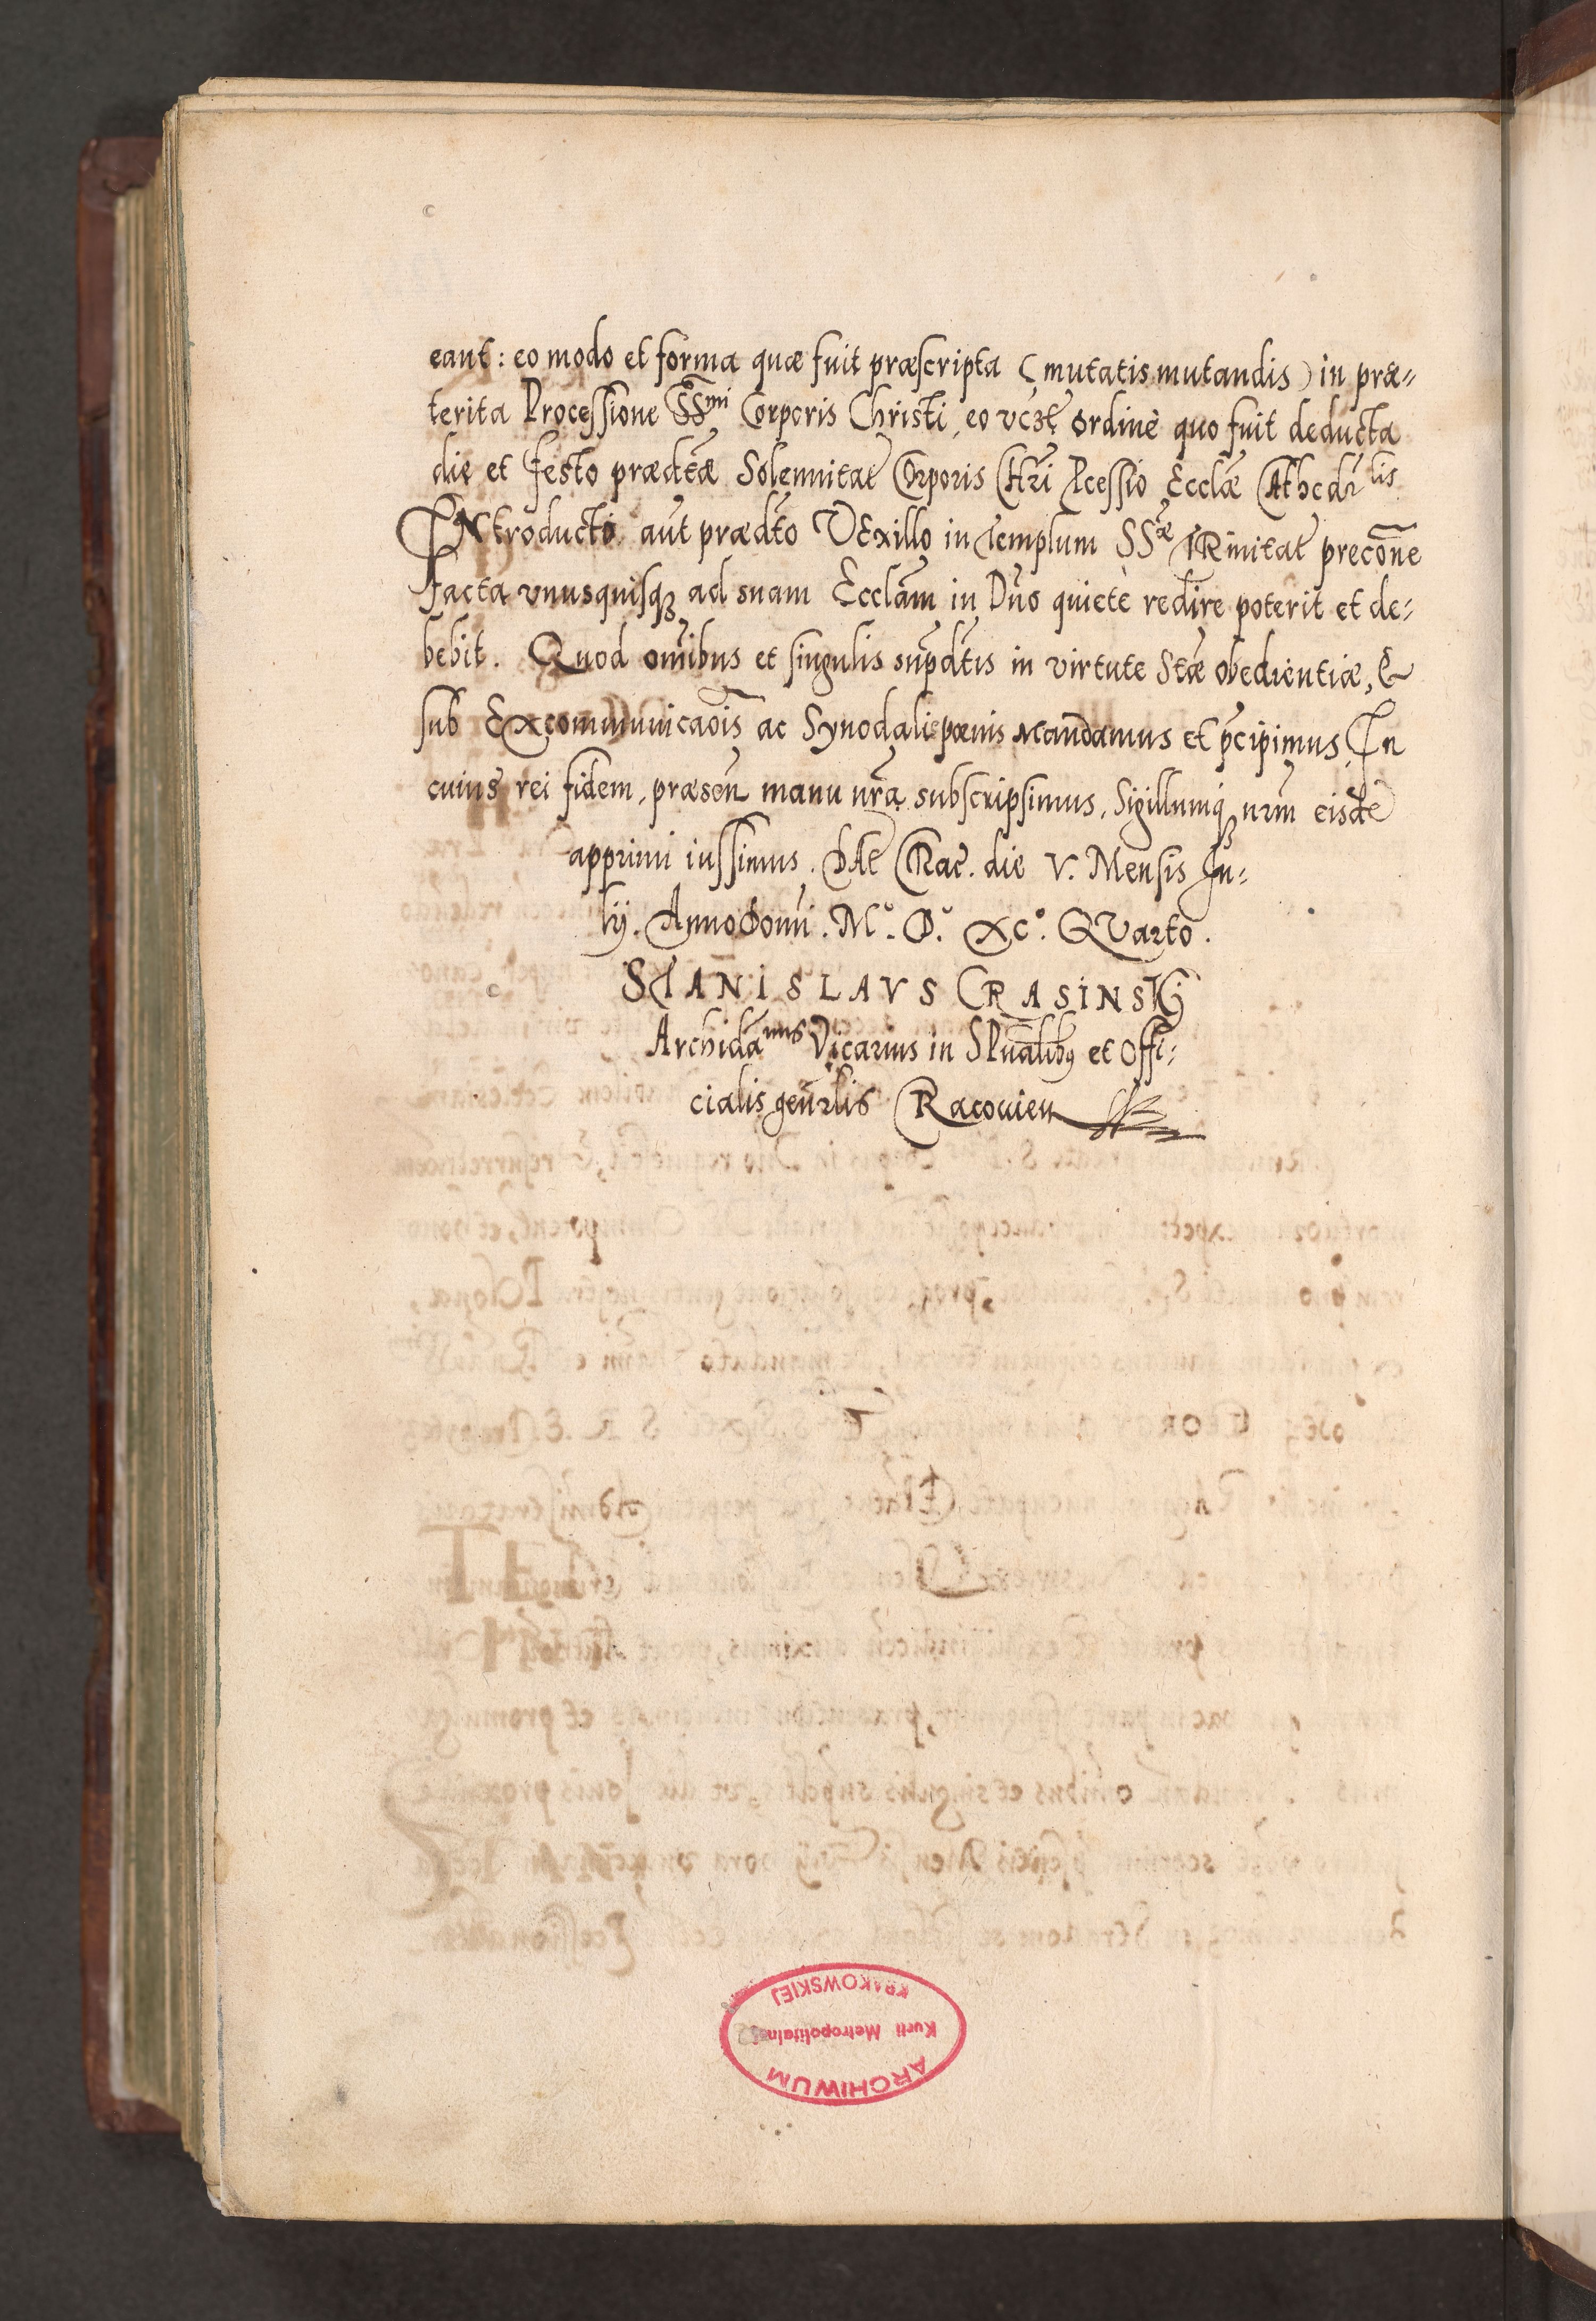 eant: eo modo et forma quæ fuit præscripta (mutatis mutandis) in præ-
terita Processione SS̃mi Corporis Christi, eo ordine quo fuit deducta
die et festo prædtæ̃ Solennitat Corporis Chr̃i Pcessio Ecclæ̃ CAthedr̃lis
INtroducto aut̃ prædt̃o VExillo in Templum SSæ TRinitat precõne
facta vnusquisqꝫ ad suam Ecclãm in Dño quiete redire poterit et de-
bebit. Quod om̃ibus et singulis sup̃dt̃is in virtute Stæ̃ obedientiæ, &
sub Excommunicaõis ac Synodalipœnis Mandamus et p̃cipimus, In
cuius rei fidem, præsen manu nr̃a subscripsimus, Sigillumqꝫ nrm̃ eisdẽ
apprimi iussimus. DAt CRac. die V. Mensis Iu-
lÿ. Anno Domi. Mº. D.º XCº. QVarto.
STANISLAVS CRASINSKj
Archidãnus Vicarius in SPũalibꝫ et Offi-
cialis gen̄rlis CRacouien
ARCHIWUM
Kurii Metropolitalnej
KRAKOWSKIEJ